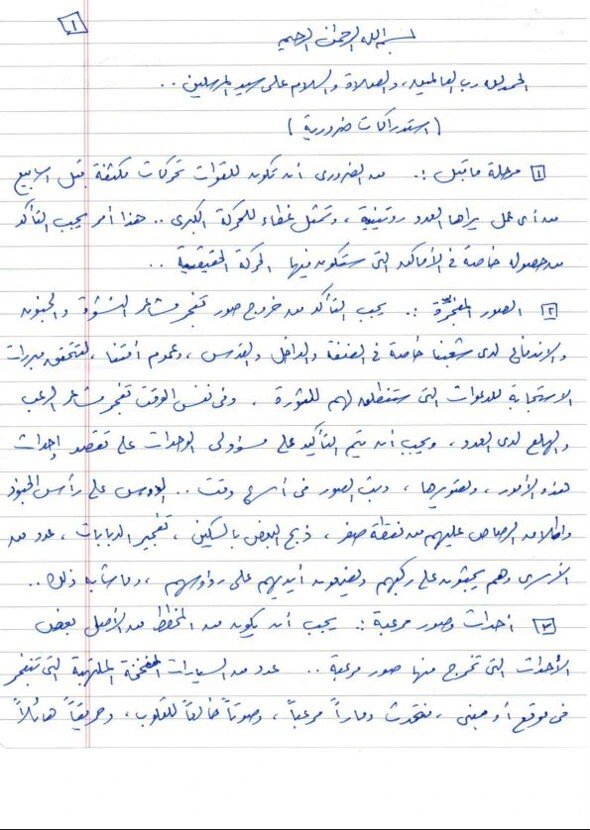 ١
بسم الله الرحمن الرحيم
الحمد لله رب العالمين، والصلاة والسلام على سيد المرسلين ..
(استدراكات ضرورية)
١ مرحلة ما قبل :. من الضروري أن تكون للقوات تحركات مكثفة قبل أسابيع
من أي عمل يراها العدو روتينية، وتمثل غطاء للحركة الكبرى .. هذا أمر يجب التأكد
من حصوله خاصة في الأماكن التي ستكون فيها الحركة الحقيقية ..
٢ الصور المفجرة :. يجب التأكد من خروج صور تفجر مشاعر النشوة والجنون
والاندفاع لدى شعبنا خاصة في الضفة والداخل والقدس، وعموم أمتنا، لتتحقق مبررات
الاستجابة للدعوات التي ستنطلق لهم للثورة، وفي نفس الوقت تفجر مشاعر الرعب
والهلع لدى العدو، ويجب أن يتم التأكيد على مسؤولي الوحدات على تقصد إحداث
هذه الأمور، وتصويرها، وبث الصور في أسرع وقت .. الدوس على رأس الجنود
وإطلاق الرصاص عليهم من نقطة صفر، ذبح البعض بالسكين، تفجير الدبابات، عدد من
الأسرى وهم يجثون على ركبهم ويضعون أيديهم على رؤوسهم، وما شابه ذلك ..
٣ أحداث وصور مرعبة :. يجب أن يكون من المخطط من الأصل بعض
الأحداث التي تخرج منها صور مرعبة .. عدد من السيارات المفخخة الملتهبة التي تنفجر
في موقع أو مبنى، فتحدث دماراً مرعباً، وصوتاً خالعاً للقلوب، وحريقاً هائلاً